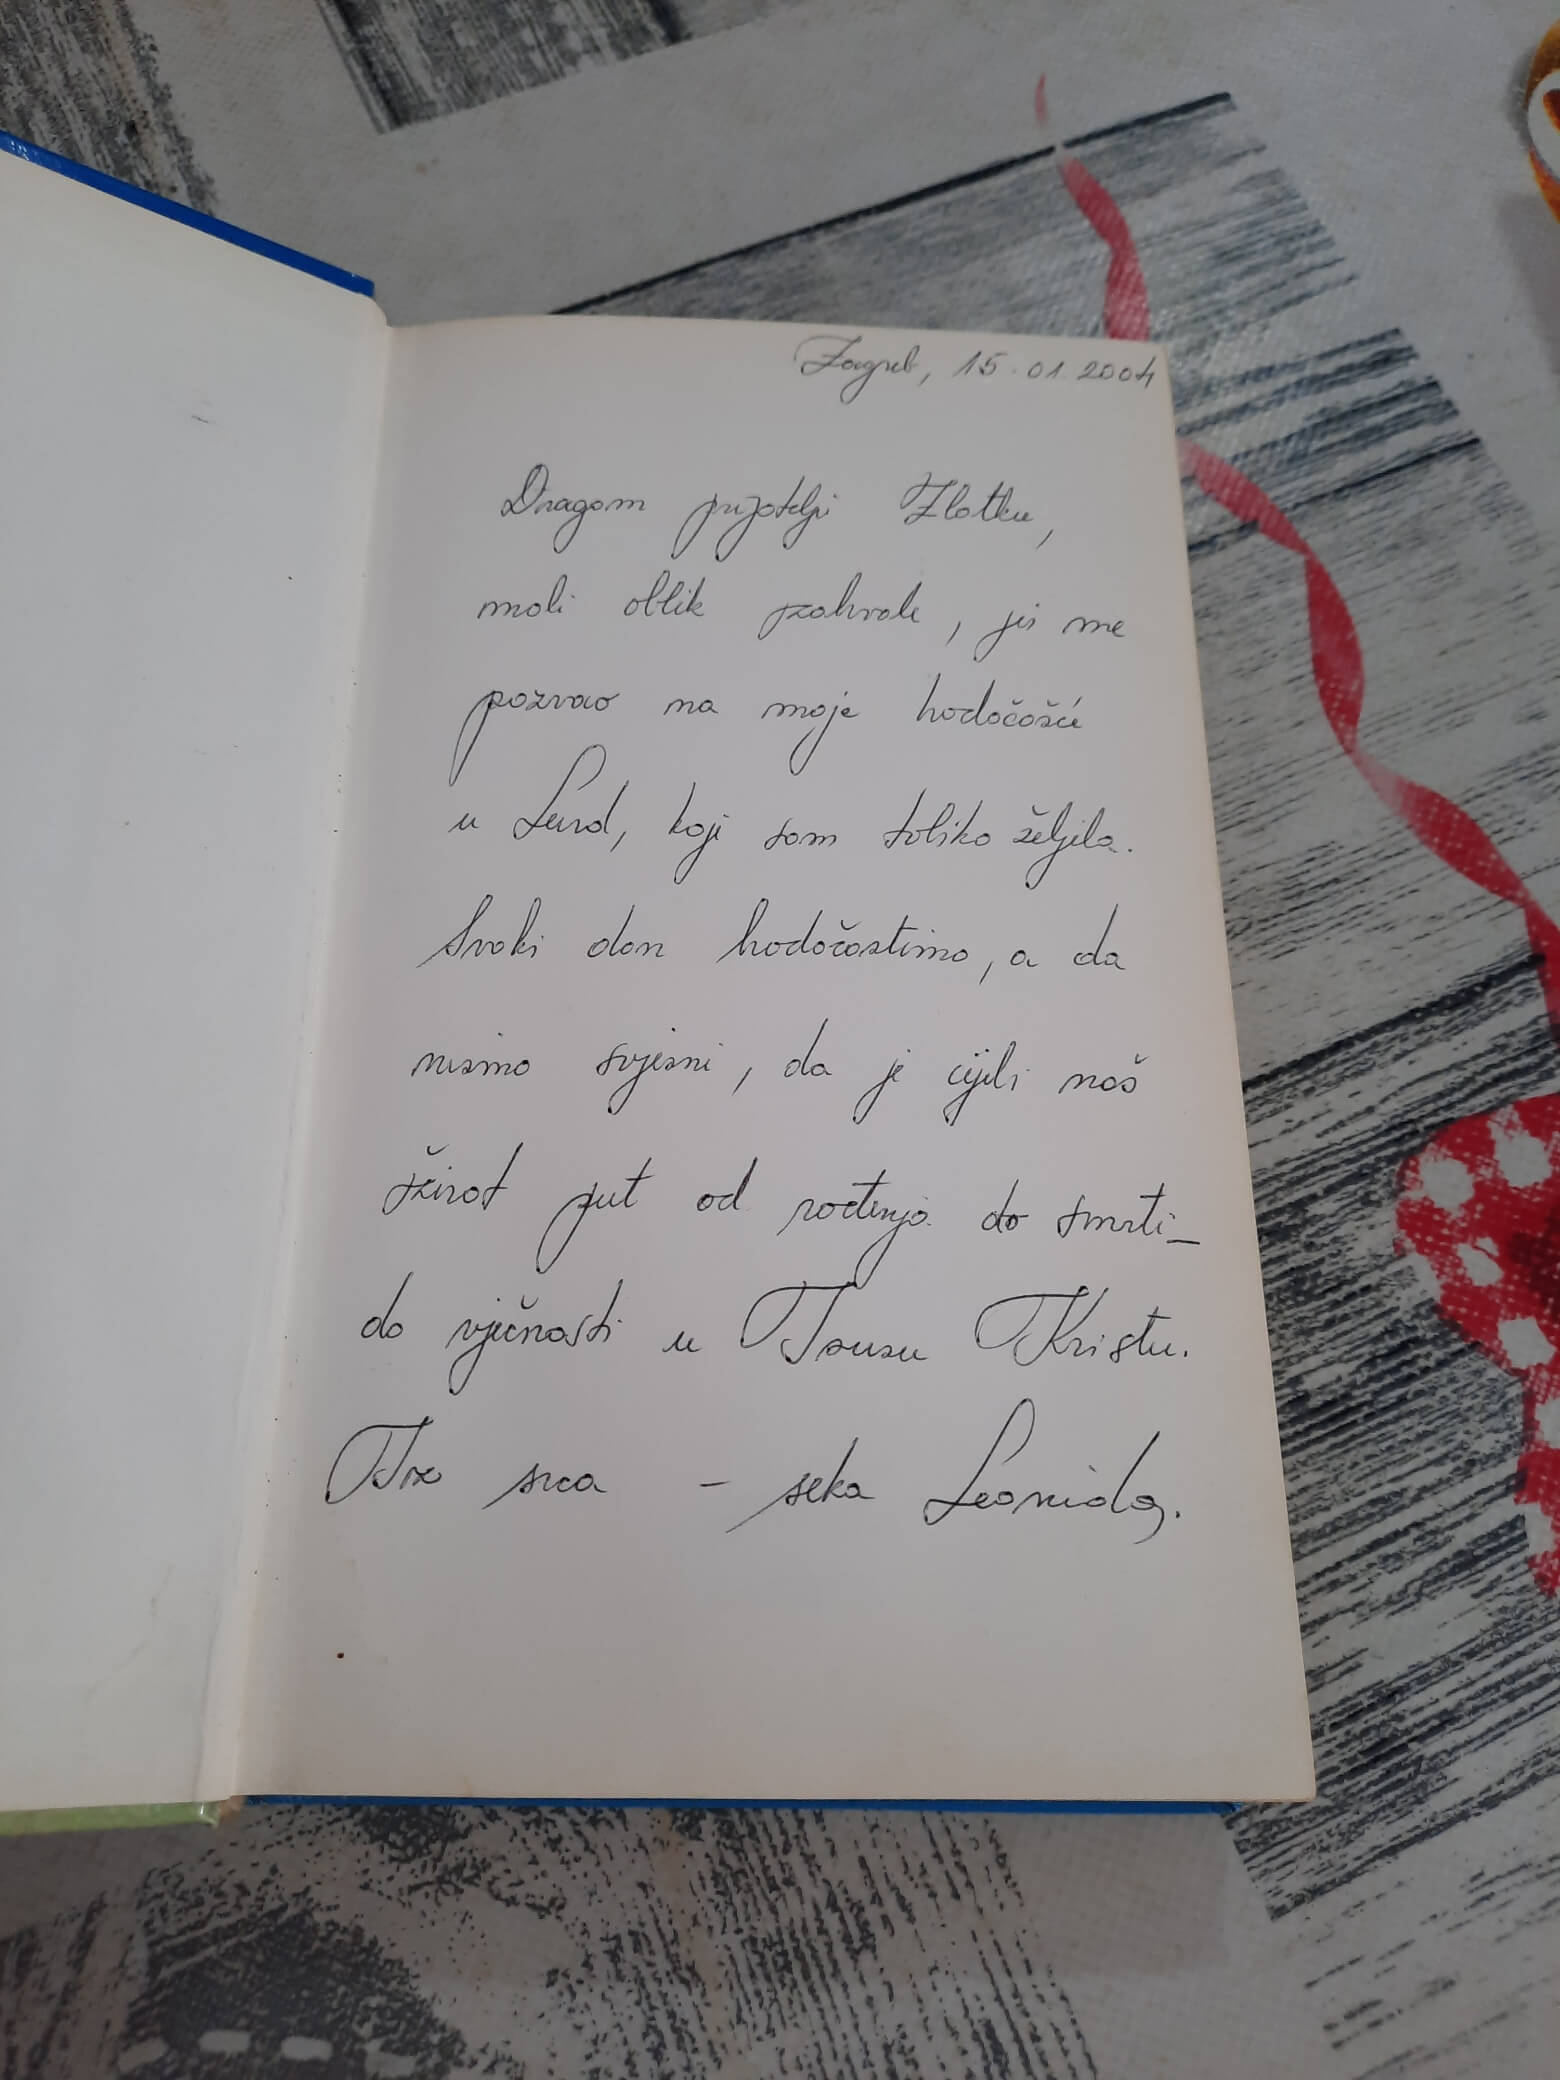 Zagreb, 15.01.2004
Dragom prijatelju Zlatku,
mali oblik zahvale, jer me
pozvao na moje hodočašće
u Lurd, koji sam toliko željela.
Svaki dan hodočastimo, a da
nismo svjesni, da je cijeli naš
život put od rođenja do smrti_
do vječnosti u Isusu Kristu.
Iz srca - seka Leonida.